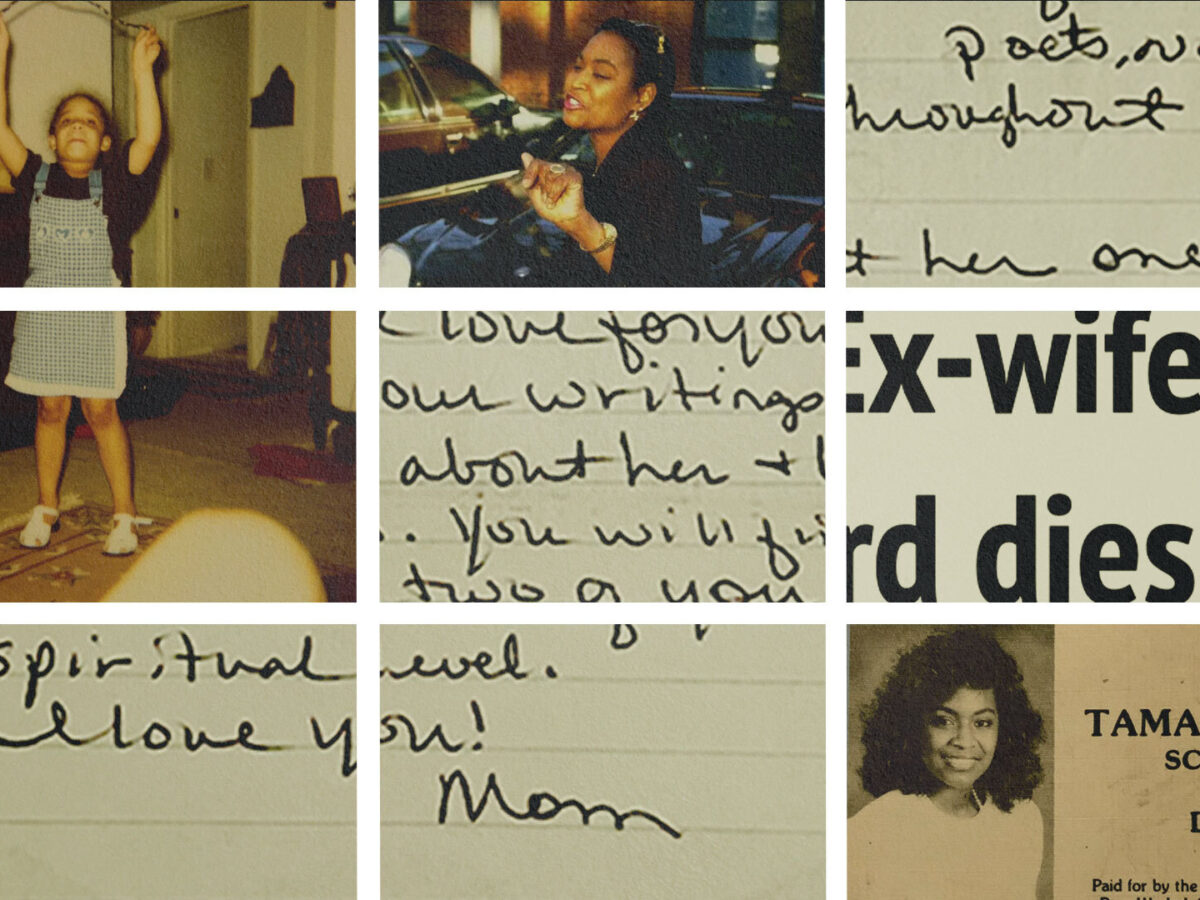 poets, no
hroughout
t her one
love for you
our writings
about her +
. You will fi
two o you
Ex-wife
rd dies
spiritual level.
I love you!
Mom
TAMA
SC
D
Paid for by the